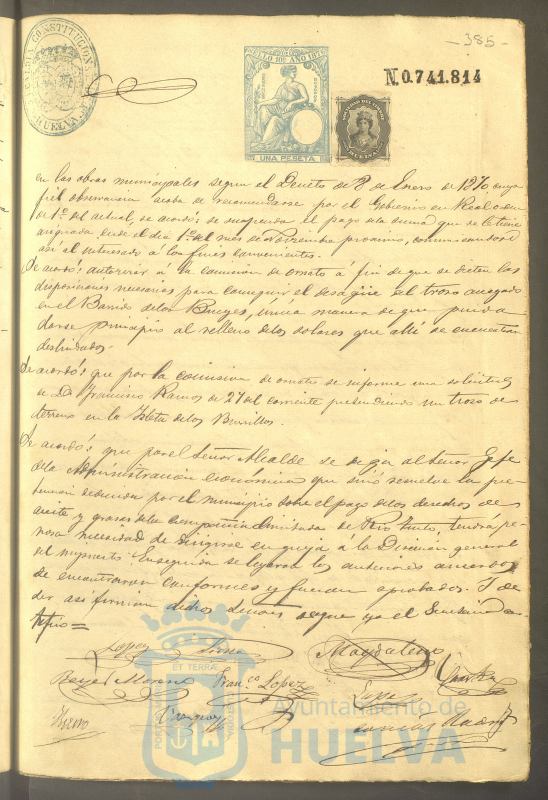 -385-
ALCALDIA CONSTITUCIONAL
HUELVA
SELLO 10º AÑO 187
UNA PESETA
N.0.741.814
en las obras municipales segun el Decreto de 8 de Enero de 1870 cuya
fiel observancia acaba de recomendarse por el Gobierno en Real orden
de 1º del actual, se acordó: se suspenda el pago de la suma que se le tiene
asignada desde el dia 1º del mes de Noviembre proximo, comunicandose
asi al interesado á los fines convenientes.
Se acordó: autorizar á la comision de ornato á fin de que se dicten las
disposiciones necesarias para conseguir el desagüe del trozo anegado
en el Barrio de los , única manera de que pueda
darse principio al relleno de los solares que alli se encuentran
deslindados.
Se acordó: que por la comision de ornato se informe una solicitud
de D. Francisco Ramos de 27 del corriente pretendiendo un trozo de
terreno en la Isleta de los Burrillos.
Se acordó: que por el Señor Alcalde se diga al Señor Gefe
de la Administracion económica que sinó resuelve la pre-
tension deducida por el municipio sobre el pago de los derechos de
aceite y grasas de la Compañia de Rio Tinto, tendrá pe-
nosa necesidad de dirigirse en queja á la Direccion general
del impuesto. Enseguida se leyeron los anteriores acuerdos
se encontraron conformes y fueron aprobados. Y de
ser asi firman dichos Señores de que yo el Secretario cer-
tifico=
Lopez
Magdaleno
Moreno Franco. Lopez
ET TERRAE
Ayuntamiento de
HUELVA